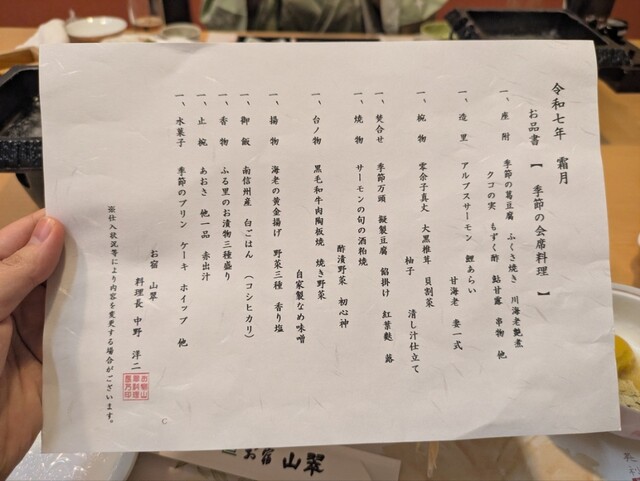 令和七年 霜月
お品書 【 季節の会席料理 】
一、座 附 季節の葛豆腐 ふくさ焼き 川海老艶煮
クコの実 もずく酢 鮎甘露 串物 他
一、造 里 アルプスサーモン 鯉あらい
甘海老 妻一式
一、椀 物 零余子真丈 大黒椎茸 貝割菜
柚子 清し汁仕立て
一、焚合せ 季節万頭 擬製豆腐 餡掛け 紅葉麩 蕗
一、焼 物 サーモンの旬の酒粕焼
酢漬野菜 初心神
一、台ノ物 黒毛和牛肉陶板焼 焼き野菜
自家製なめ味噌
一、揚 物 海老の黄金揚げ 野菜三種 香り塩
一、御 飯 南信州産 白ごはん (コシヒカリ)
一、香 物 ふる里のお漬物三種盛り
一、止 椀 あおさ 他一品 赤出汁
一、水菓子 季節のプリン ケーキ ホイップ 他
お宿 山翠
料理長 中野 洋二
※仕入状況等により内容を変更する場合がございます。
C
お宿 山翠